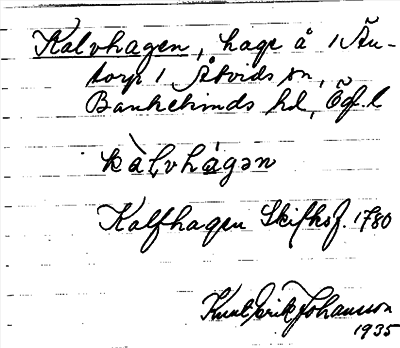 Kalvhagen, hage å 1 Än-
torp 1 Åtvids sn,
Bankekinds hd, Ögl. l
kàlvhágən
Kalfhagen Skifksf. 1780
Knut Erik Johansson
1935